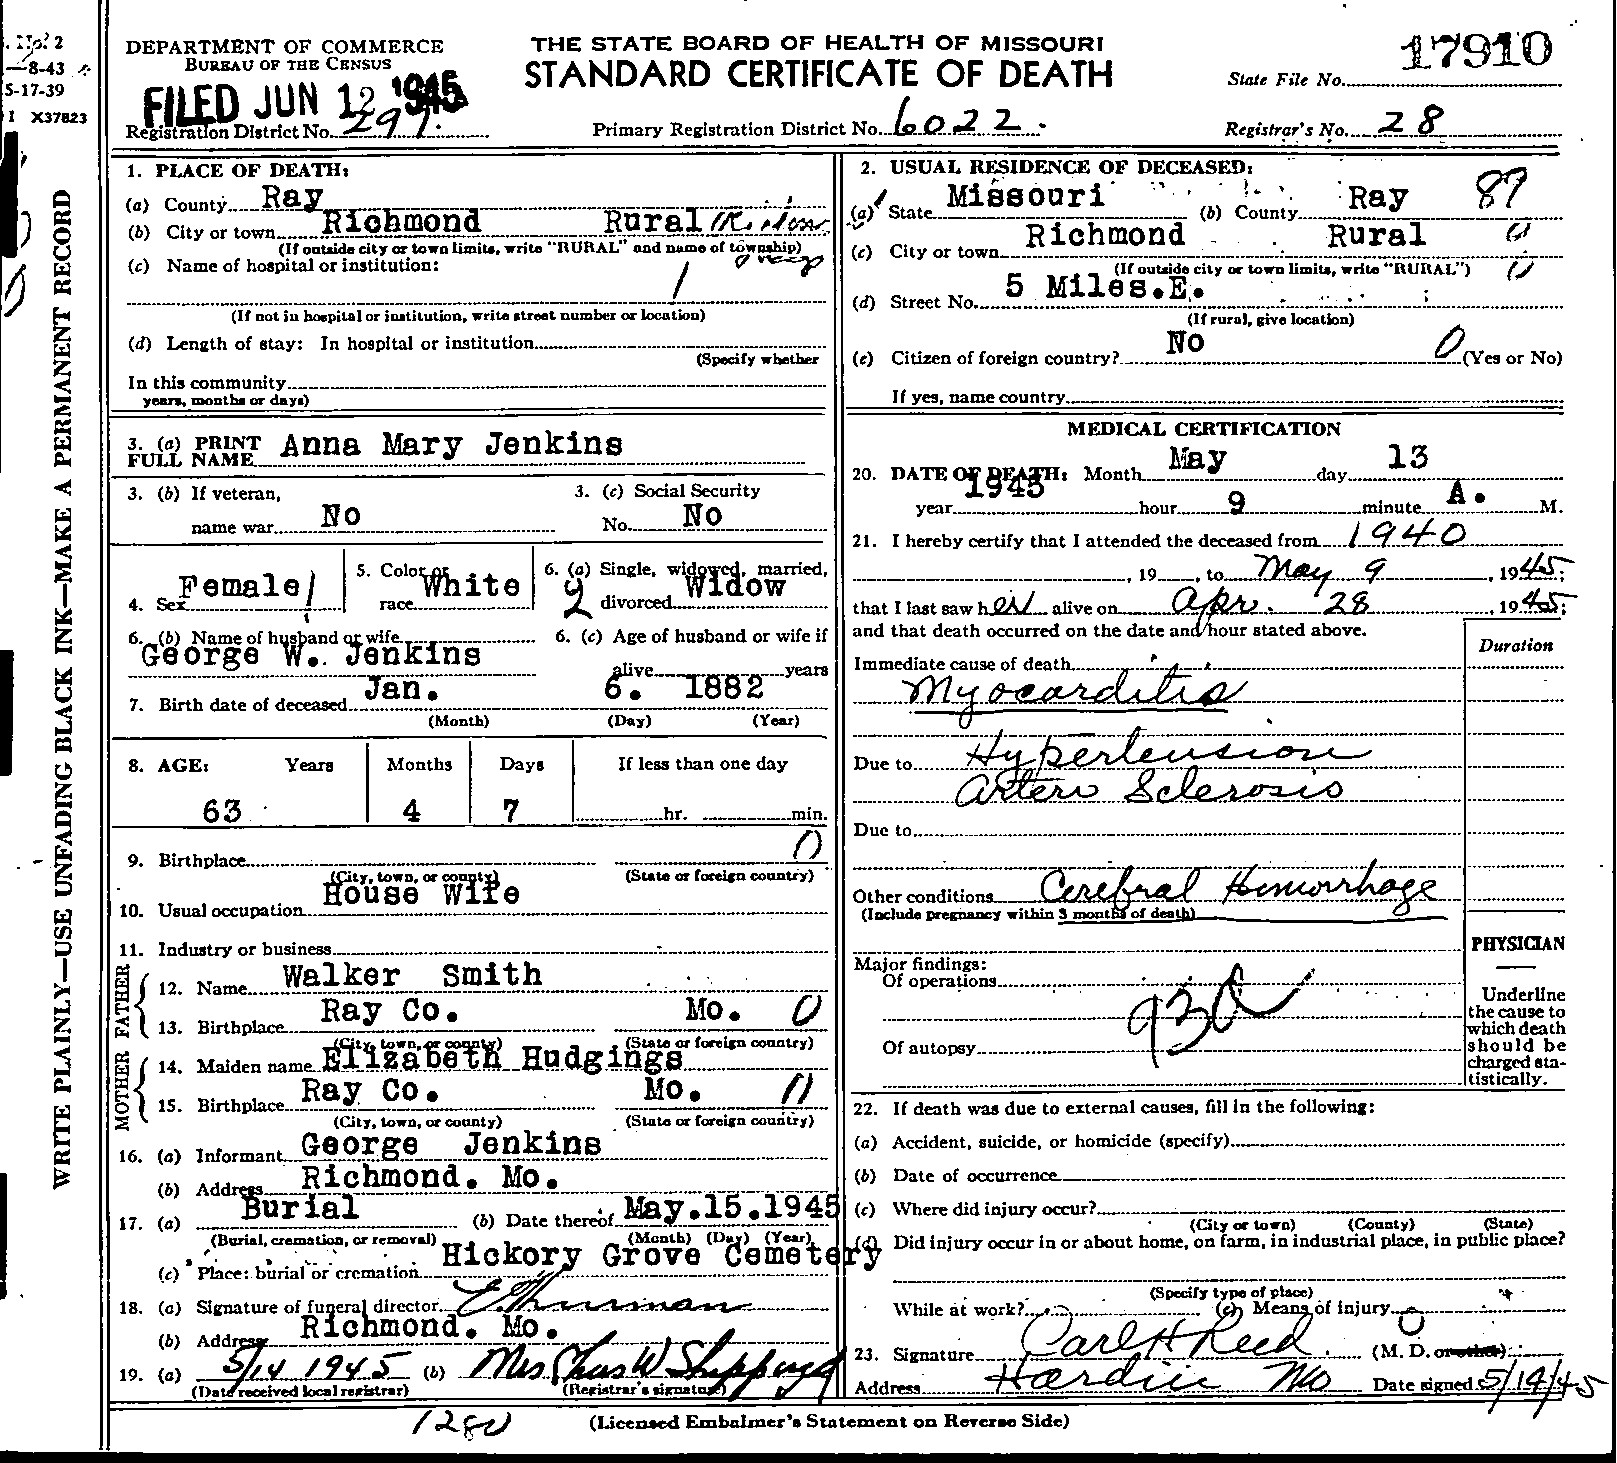 . No. 2
—8-43
5-17-39
I X37823
WRITE PLAINLY—USE UNFADING BLACK INK—MAKE A PERMANENT RECORD
DEPARTMENT OF COMMERCE
BUREAU OF THE CENSUS
FILED JUN 12 1945
Registration District No. 297.
THE STATE BOARD OF HEALTH OF MISSOURI
STANDARD CERTIFICATE OF DEATH
Primary Registration District No. 6022.
17910
State File No.
Registrar's No. 28
1. PLACE OF DEATH:
(a) County Ray
(b) City or town Richmond Rural
(If outside city or town limits, write "RURAL" and name of township)
(c) Name of hospital or institution:
1
(If not in hospital or institution, write street number or location)
(d) Length of stay: In hospital or institution
(Specify whether
In this community
years, months or days)
2. USUAL RESIDENCE OF DECEASED:
(a) State Missouri (b) County Ray 89
(c) City or town Richmond Rural 0
(If outside city or town limits, write "RURAL") 0
(d) Street No. 5 Miles.E.
(If rural, give location)
(e) Citizen of foreign country? No 0 (Yes or No)
If yes, name country
3. (a) PRINT
FULL NAME Anna Mary Jenkins
3. (b) If veteran,
name war No
3. (c) Social Security
No. No
4. Sex Female 1
5. Color or
race White
6. (a) Single, widowed, married,
2 divorced Widow
6. (b) Name of husband or wife
George W. Jenkins
6. (c) Age of husband or wife if
alive years
7. Birth date of deceased Jan. 6. 1882
(Month) (Day) (Year)
8. AGE: Years Months Days If less than one day
63 4 7 hr. min.
9. Birthplace 0
(City, town, or county) (State or foreign country)
10. Usual occupation House Wife
11. Industry or business
FATHER
12. Name Walker Smith
13. Birthplace Ray Co. Mo. 0
(City, town, or county) (State or foreign country)
MOTHER
14. Maiden name Elizabeth Hudgings
15. Birthplace Ray Co. Mo. 0
(City, town, or county) (State or foreign country)
16. (a) Informant George Jenkins
(b) Address Richmond. Mo.
17. (a) Burial (b) Date thereof May.15.1945
(Burial, cremation, or removal) (Month) (Day) (Year)
(c) Place: burial or cremation Hickory Grove Cemetery
18. (a) Signature of funeral director E. Thurman
(b) Address Richmond. Mo.
19. (a) 5/14 1945 (b) Mrs Chas W Sheppard
(Date received local registrar) (Registrar's signature)
MEDICAL CERTIFICATION
20. DATE OF DEATH: Month May day 13
year 1945 hour 9 minute A. M.
21. I hereby certify that I attended the deceased from 1940
, 19 , to May 9 , 1945;
that I last saw her alive on Apr. 28 , 1945;
and that death occurred on the date and hour stated above.
Duration
Immediate cause of death
Myocarditis
Due to Hypertension
Arterio Sclerosis
Due to
Other conditions Cerebral Hemorrhage
(Include pregnancy within 3 months of death)
Major findings:
Of operations
Of autopsy
93a
PHYSICIAN
Underline
the cause to
which death
should be
charged sta-
tistically.
22. If death was due to external causes, fill in the following:
(a) Accident, suicide, or homicide (specify)
(b) Date of occurrence
(c) Where did injury occur?
(City or town) (County) (State)
(d) Did injury occur in or about home, on farm, in industrial place, in public place?
(Specify type of place)
While at work? (e) Means of injury
23. Signature Carl H Reed (M. D. or other)
Address Hardin Mo Date signed 5/14/45
1280
(Licensed Embalmer's Statement on Reverse Side)